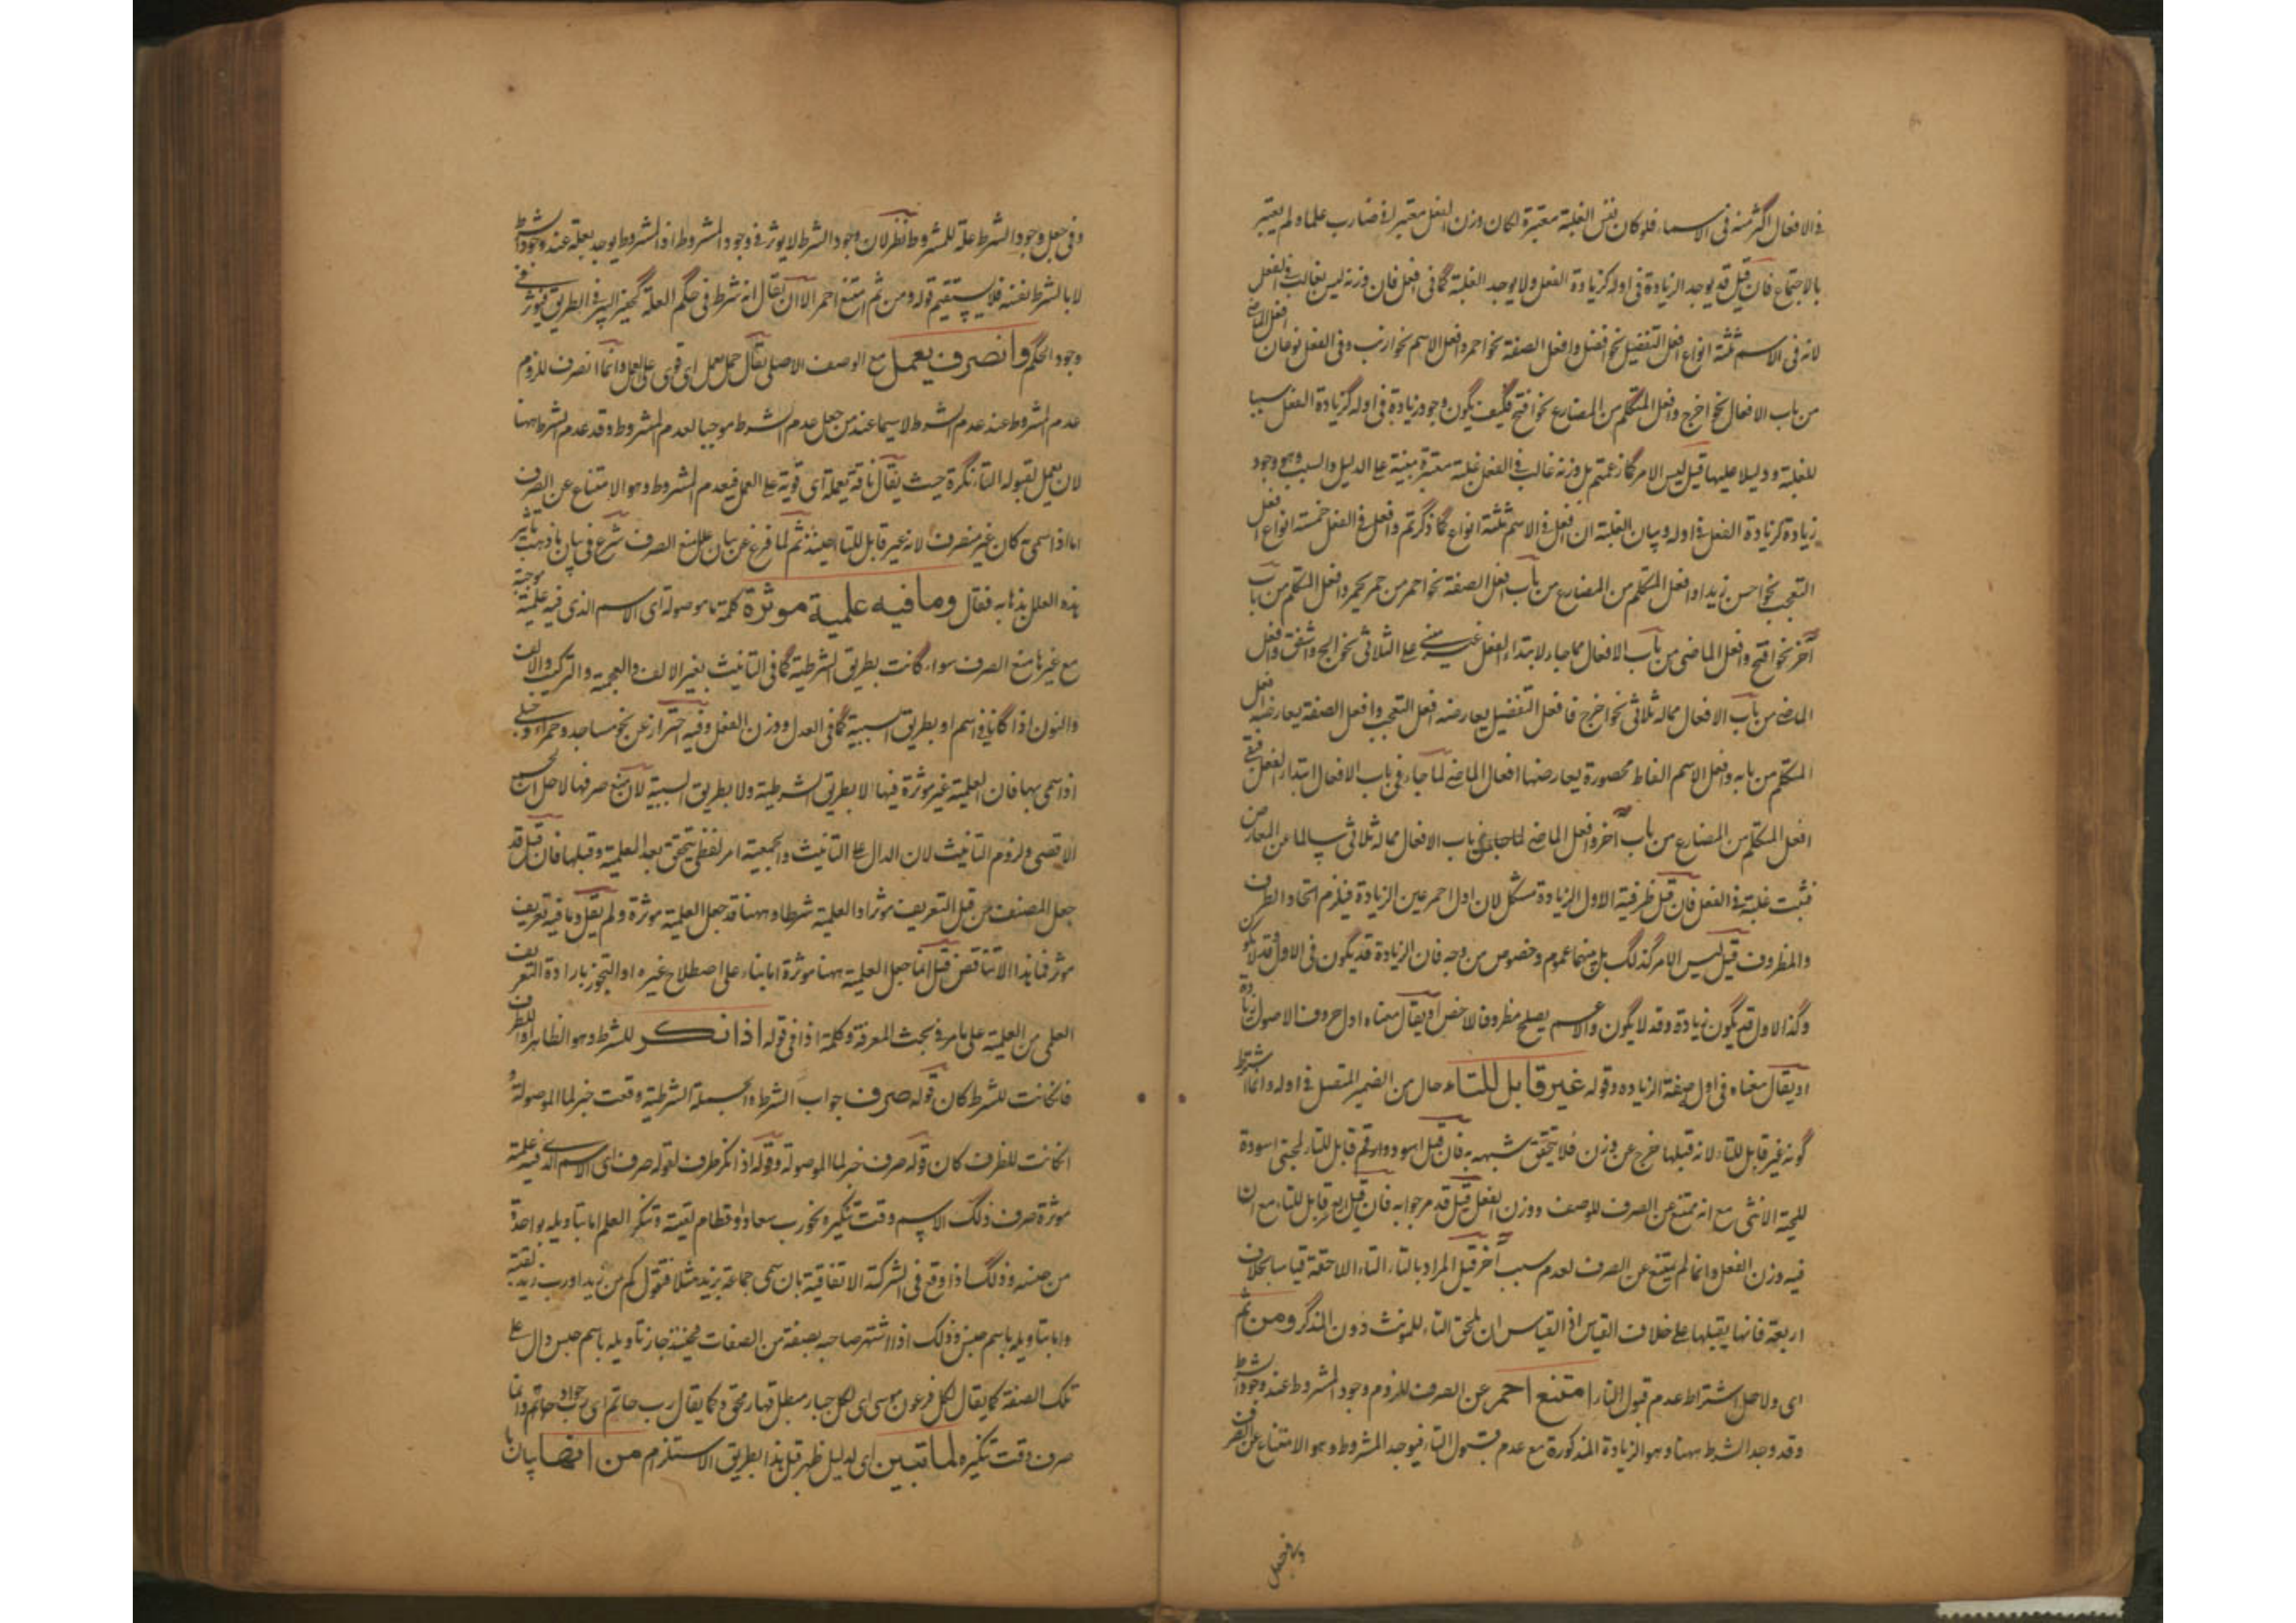 فى الافعال اكثر منه فى الاسماء فلو كان نفس الغلبة معتبرة لكان وزن الفعل معتبرا فى ضارب علما ولم يعتبر
بالاجتماع فان قيل قد يوجد الزيادة فى اوله كزيادة الفعل ولا يوجد الغلبة كما فى افعل فان وزنه ليس بغالب فى الفعل
لانه فى الاسم ثلثة انواع افعل التفضيل نحو افضل وافعل الصفة نحو احمر وافعل الاسم نحو ارنب وفى الفعل نوعان افعل الماضى
من باب الافعال نحو اخرج وافعل المتكلم من المضارع نحو افتح فكيف يكون وجود زيادة فى اوله كزيادة الفعل سببا
للغلبة ودليلا عليها قيل ليس الامر كما زعمتم بل وزنه غالب فى الفعل غلبة معتبرة مبنية على الدليل والسبب وهو وجود
زيادة كزيادة الفعل فى اوله وبيان الغلبة ان افعل فى الاسم ثلثة انواع كما ذكرتم وافعل فى الفعل خمسة انواع افعل
التعجب نحو احسن زيدا وافعل المتكلم من المضارع من باب افعل الصفة نحو احمر من حمر يحمر وافعل المتكلم من باب
آخر نحو افتح وافعل الماضى من باب الافعال مما جاء لابتداء الفعل غير مبنى على الثلاثى نحو واشفق وافعل
الماضى من باب الافعال مما له ثلاثى نحو اخرج فافعل التفضيل يعارضه افعل التعجب وافعل الصفة يعارضه افعل
المتكلم من بابه وافعل الاسم الفاظ محصورة يعارضها افعل الماضى لما جاء فى باب الافعال ابتداء الفعل فبقى
افعل المتكلم من المضارع من باب آخر وافعل الماضى لما جاء فى باب الافعال مما له ثلاثى سالما عن المعارض
فثبت غلبته فى الفعل فان قيل ظرفية الاول للزيادة مشكل لان اول احمر عين الزيادة فيلزم اتحاد الظرف
والمظروف قيل ليس الامر كذلك بل بينهما عموم وخصوص من وجه فان الزيادة قد يكون فى الاول وقد لا يكون
وكذا الاول قد يكون زيادة وقد لا يكون والاعم يصلح مظروفا للاخص او يقال معناه اول حروف الاصول زيادة
او يقال معناه فى اول صيغته الزيادة وقوله غير قابل للتاء حال من الضمير المتصل فى اوله وانما اشترط
كونه غير قابل للتاء لانه قبلها خرج عن وزن فلا يتحقق شبهه به فان قيل اسود وارقم قابل للتاء لمجئ اسودة
للحية الانثى مع انه ممتنع عن الصرف للوصف ووزن الفعل قيل قد مر جوابه فان قيل اربع قابل للتاء مع ان
فيه وزن الفعل وانما لم يمتنع عن الصرف لعدم سبب آخر قيل المراد بالتاء التاء اللاحقة قياسا بخلاف
اربعة فانها يقبلها على خلاف القياس اذ القياس ان يلحق التاء للمؤنث دون المذكر ومن ثم
اى ولاجل اشتراط عدم قبول التاء امتنع احمر عن الصرف للزوم وجود المشروط عند وجود الشرط
وقد وجد الشرط ههنا وهو الزيادة المذكورة مع عدم قبول التاء فيوجد المشروط وهو الامتناع عن الصرف
وفى جعل
وفى جعل وجود الشرط علة للمشروط نظر لان وجود الشرط لا يوثر فى وجود المشروط اذ المشروط يوجد بعلته عند وجود الشرط
لا بالشرط نفسه فلا يستقيم قوله ومن ثم امتنع احمر الا ان يقال انه شرط فى حكم العلة كحفر البير فى الطريق فيوثر فى
وجود الحكم وانصرف يعمل مع الوصف الاصلى يقال جمل يعمل اى قوى على العمل وانما انصرف للزوم
عدم المشروط عند عدم الشرط لا سيما عند من جعل عدم الشرط موجبا لعدم المشروط وقد عدم الشرط ههنا
لان يعمل لقبوله التاء نكرة حيث يقال ناقة يعملة اى قوية على العمل فيعدم المشروط وهو الامتناع عن الصرف
اما اذا سمى به كان غير منصرف لانه غير قابل للتاء حينئذ ثم لما فرغ عن بيان علل منع الصرف شرع فى بيان ما ذهب تاثير
هذه العلل بذهابه فقال وما فيه علمية موثرة كلمة ما موصولة اى الاسم الذى فيه علمية موجبة
مع غيرها منع الصرف سواء كانت بطريق الشرطية كما فى التانيث بغير الالف والعجمة والتركيب والالف
والنون اذا كانا فى اسم او بطريق السببية كما فى العدل ووزن الفعل وفيه احتراز عن نحو مساجد وحمراء وحبلى
اذا سمى بها فان العلمية غير موثرة فيها لا بطريق الشرطية ولا بطريق السببية لان منع صرفها لاجل الجمع
الاقصى ولزوم التانيث لان الدال على التانيث والجمعية امر لفظى يتحقق بعد العلمية وقبلها فان قيل قد
جعل المصنف من قبل التعريف موثرا والعلمية شرطا وههنا قد جعل العلمية موثرة ولم يقل وما فيه تعريف
موثر فما هذا الا تناقض قيل انما جعل العلمية ههنا موثرة اما بناء على اصطلاح غيره او التجوز بارادة التعريف
العلمى من العلمية على ما مر فى بحث المعرفة وكلمة اذا فى قوله اذا نكر للشرط وهو الظاهر او للظرف
فان كانت للشرط كان قوله صرف جواب الشرط والجملة الشرطية وقعت خبر لما الموصولة و
ان كانت للظرف كان قوله صرف خبر لما الموصولة وقوله اذا نكر ظرف لقوله صرف اى الاسم الذى فيه علمية
موثرة صرف ذلك الاسم وقت تنكيره نحو رب سعاد وقطام لقيته وتنكير العلم اما بتاويله بواحد
من صنفه وذلك اذا وقع فى الشركة الاتفاقية بان سمى جماعة بزيد مثلا فتقول كم من زيد او رب زيد لقيته
واما بتاويله باسم جنس وذلك اذا اشتهر صاحبه بصفة من الصفات فحينئذ جاز تاويله باسم جنس دال على
تلك الصفة كما يقال لكل فرعون موسى اى لكل جبار مبطل قهار محق وكما يقال رب حاتم اى رب جواد وانما
صرف وقت تنكيره لما تبين اى لدليل ظهر قبل هذا بطريق الاستلزام من انها بيان ما